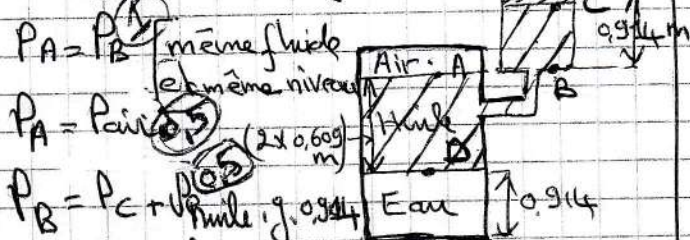 P_A = P_B (1) même fluide
et même niveau
P_A = P_air 0,5
P_B = P_C + ρ_huile . g . 0,914 0,5
Air . A
Huile
(2x0,609 m)
D
Eau
0,914
C
0,914 m
B